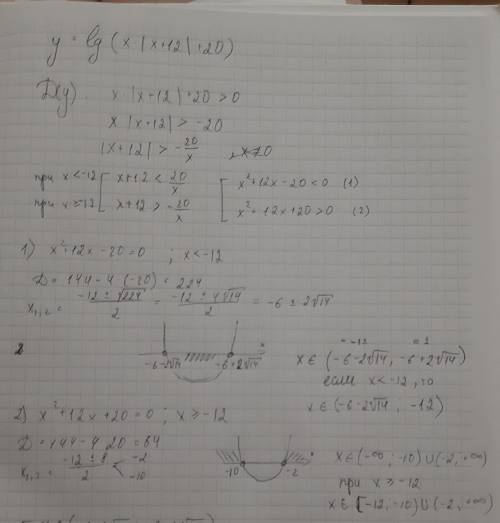 y = lg (x · |x+12| +20)
D(y) x · |x+12| +20 > 0
x |x+12| > -20
|x+12| > -20/x , x≠0
при x < -12 [ x+12 < 20/x [ x²+12x-20 < 0 (1)
при x ≥ -12 [ x+12 > -20/x [ x²+12x+20 > 0 (2)
1) x²+12x-20=0 ; x < -12
D = 144-4·(-20) = 224
x₁,₂ = (-12 ± √224)/2 = (-12 ± 4√14)/2 = -6 ± 2√14
-6-2√14 -6+2√14 x
x ∈ (-6-2√14, -6+2√14)
если x < -12, то
x ∈ (-6-2√14, -12)
2) x²+12x+20=0 ; x ≥ -12
D = 144-4·20 = 64
x₁,₂ = (-12 ± 8)/2 < -2 -10
-10 -2 x
x ∈ (-∞; -10) ∪ (-2, +∞)
при x ≥ -12
x ∈ [-12, -10) ∪ (-2, +∞)